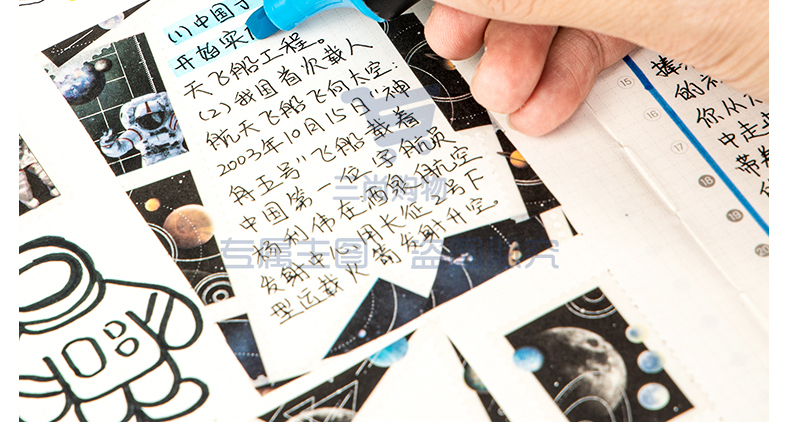 (1)中国于
开始实
天飞船工程。
(2)我国首次载人
航天飞船飞向太空:
2003年10月15日"神
舟五号"飞船载着
中国第一位宇航员
杨利伟在酒泉航空
发射中心用长征2号F
型运载火箭发射升空。
的
你从
中走
带着
15
16
17
18
19
20
三尚购物
专属主图 盗图必究